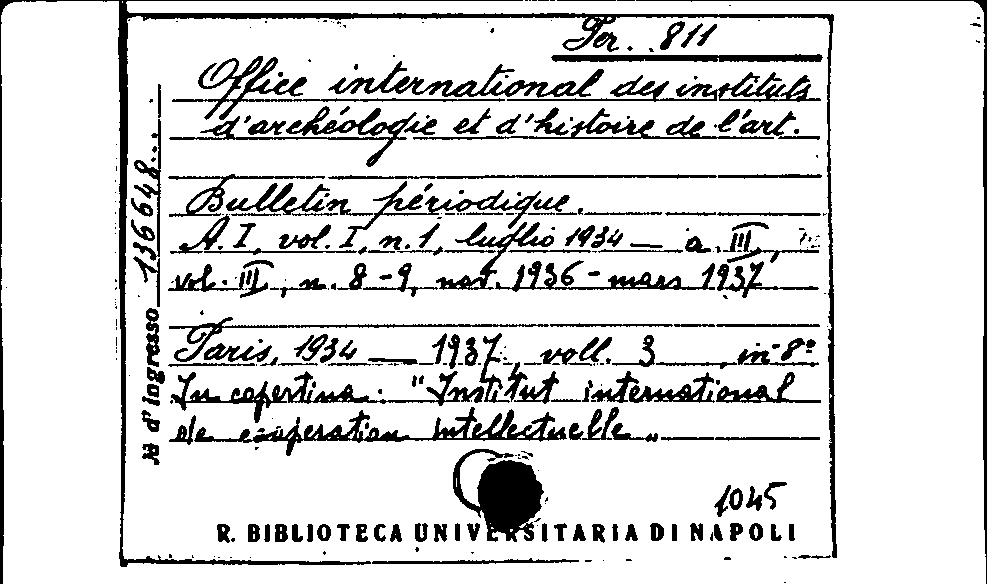 Per. 811
Office international des instituts
d'archéologie et d'histoire de l'art.
Bulletin périodique.
A. I, vol. I, n. 1, luglio 1934 — a. III,
vol. III, n. 8-9, nov. 1936 - mars 1937
Paris, 1934 — 1937, voll. 3, in-8º
In copertina: "Institut international
de cooperation intellectuelle"
№ d'ingresso 136648...
1045
R. BIBLIOTECA UNIVERSITARIA DI NAPOLI